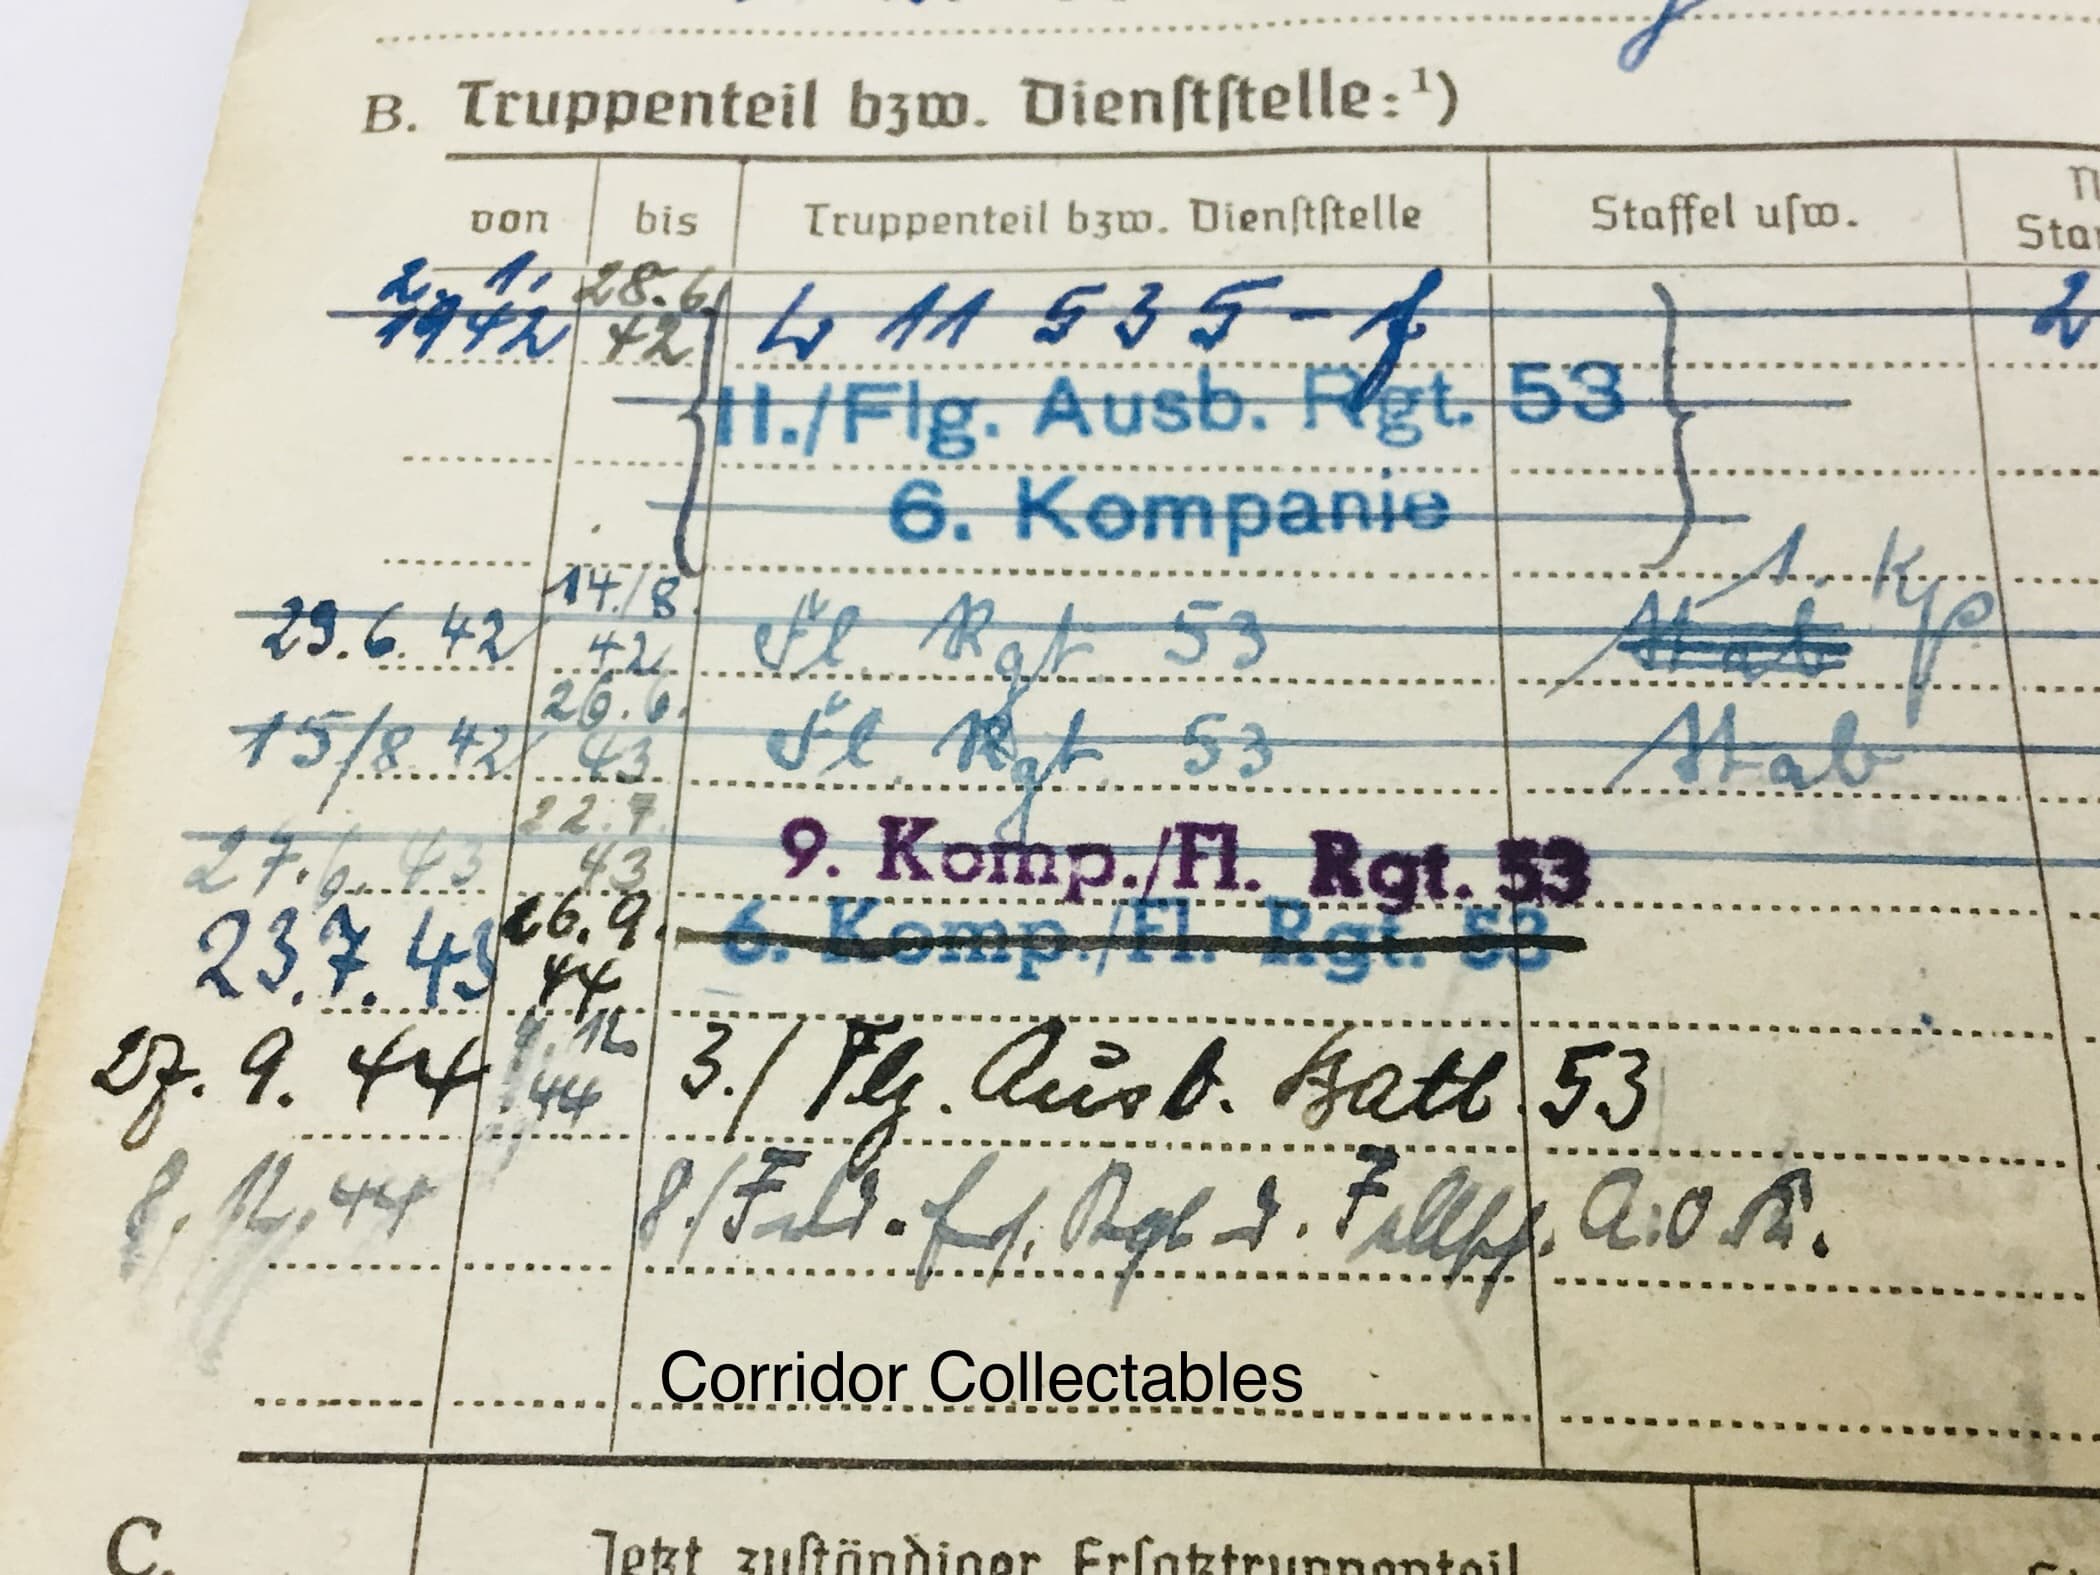 B. Truppenteil bzw. Dienststelle:¹)
von bis Truppenteil bzw. Dienststelle Staffel usw.
2. 1. 1942 28.6. 42 L 11 535 - f 2
II./Flg. Ausb. Rgt. 53
6. Kompanie
1. Kp
29.6.42 14./8. 42 Fl. Rgt 53 Stab
15/8.42 26.6. 43 Fl. Rgt. 53 Stab
27.6.43 22.7. 43 9. Komp./Fl. Rgt. 53
23.7.43 26.9. 44 6. Komp./Fl. Rgt. 53
27.9.44 12. 44 3./Flg. Ausb. Batl. 53
8.12.44 8./Feld. Rgt d. Fallsch. A.O.K.
Corridor Collectables
C. Jetzt zuständiger Ersatztruppenteil